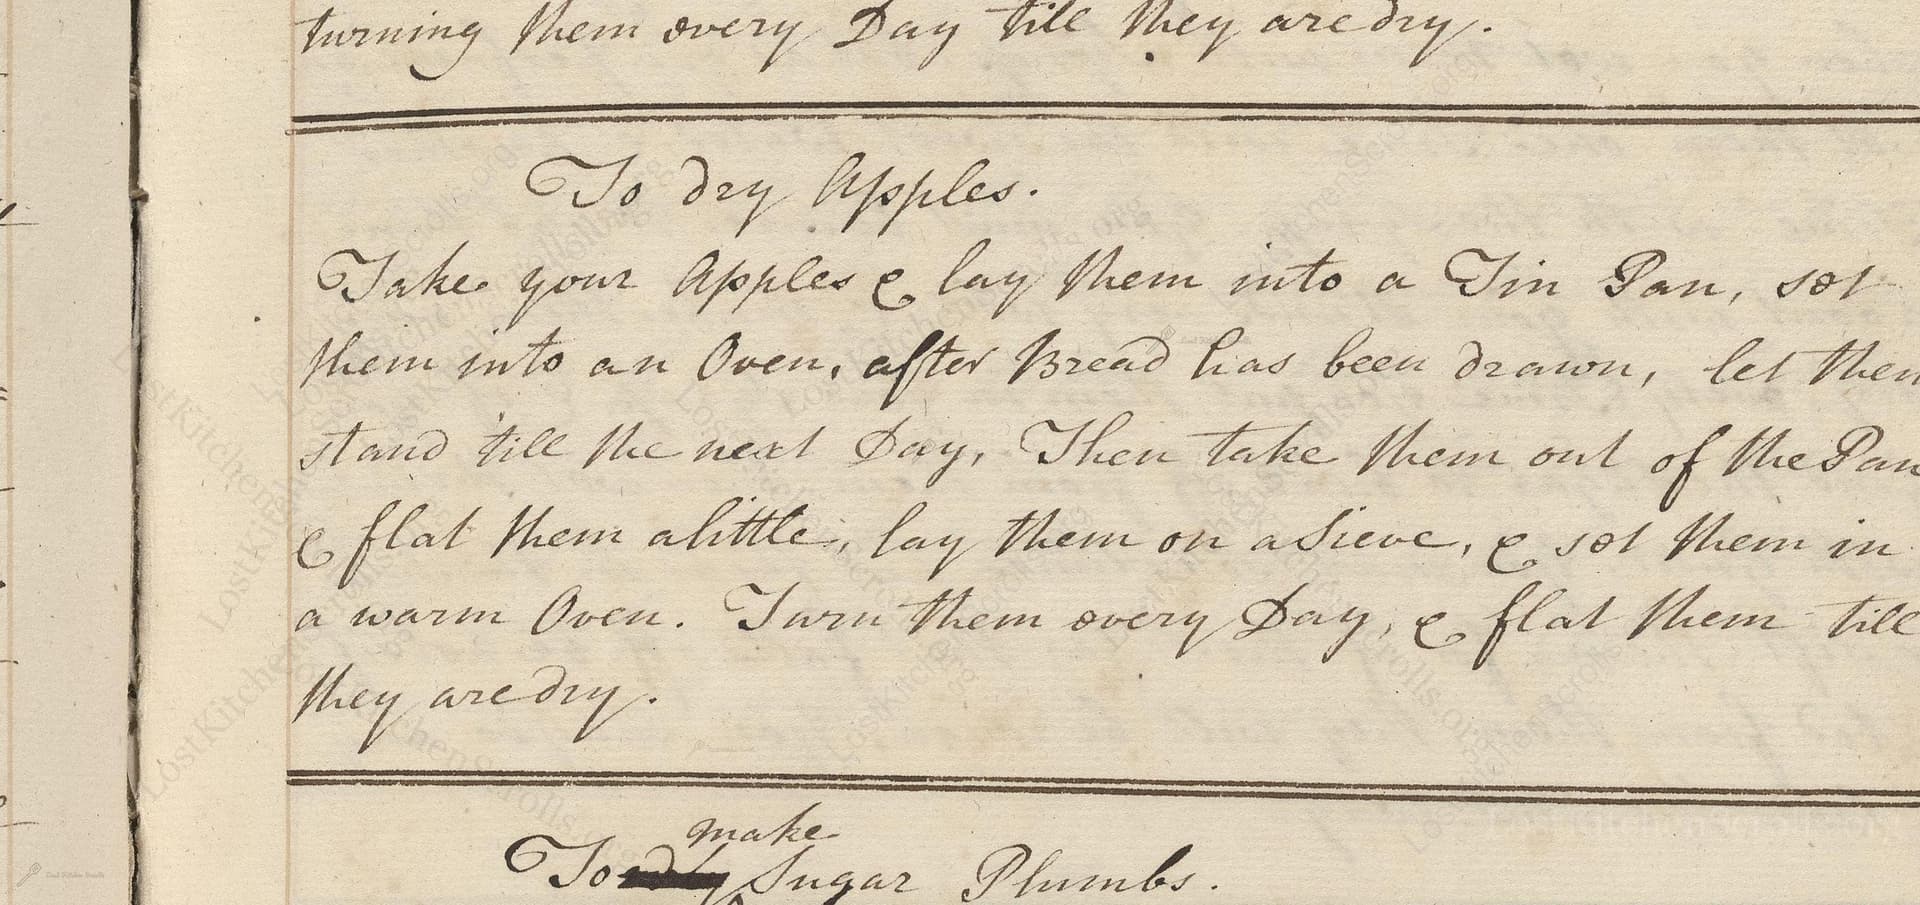 turning them every Day till they are dry.
To dry Apples.
Take your Apples & lay them into a Tin Pan, set
them into an Oven, after Bread has been drawn, let them
stand till the next Day, Then take them out of the Pan
& flat them a little, lay them on a Sieve, & set them in
a warm Oven. Turn them every Day, & flat them till
they are dry.
make
To Sugar Plumbs.